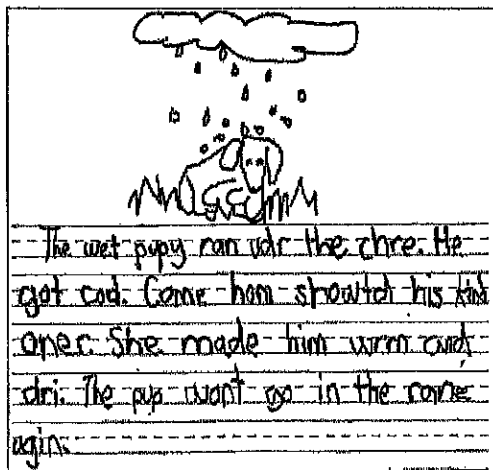 The wet pupy ran udr the chre. He
got cod. Come hom showtd his kind
oner. She made him wrm and
dri. The pup wont go in the rane
agin.